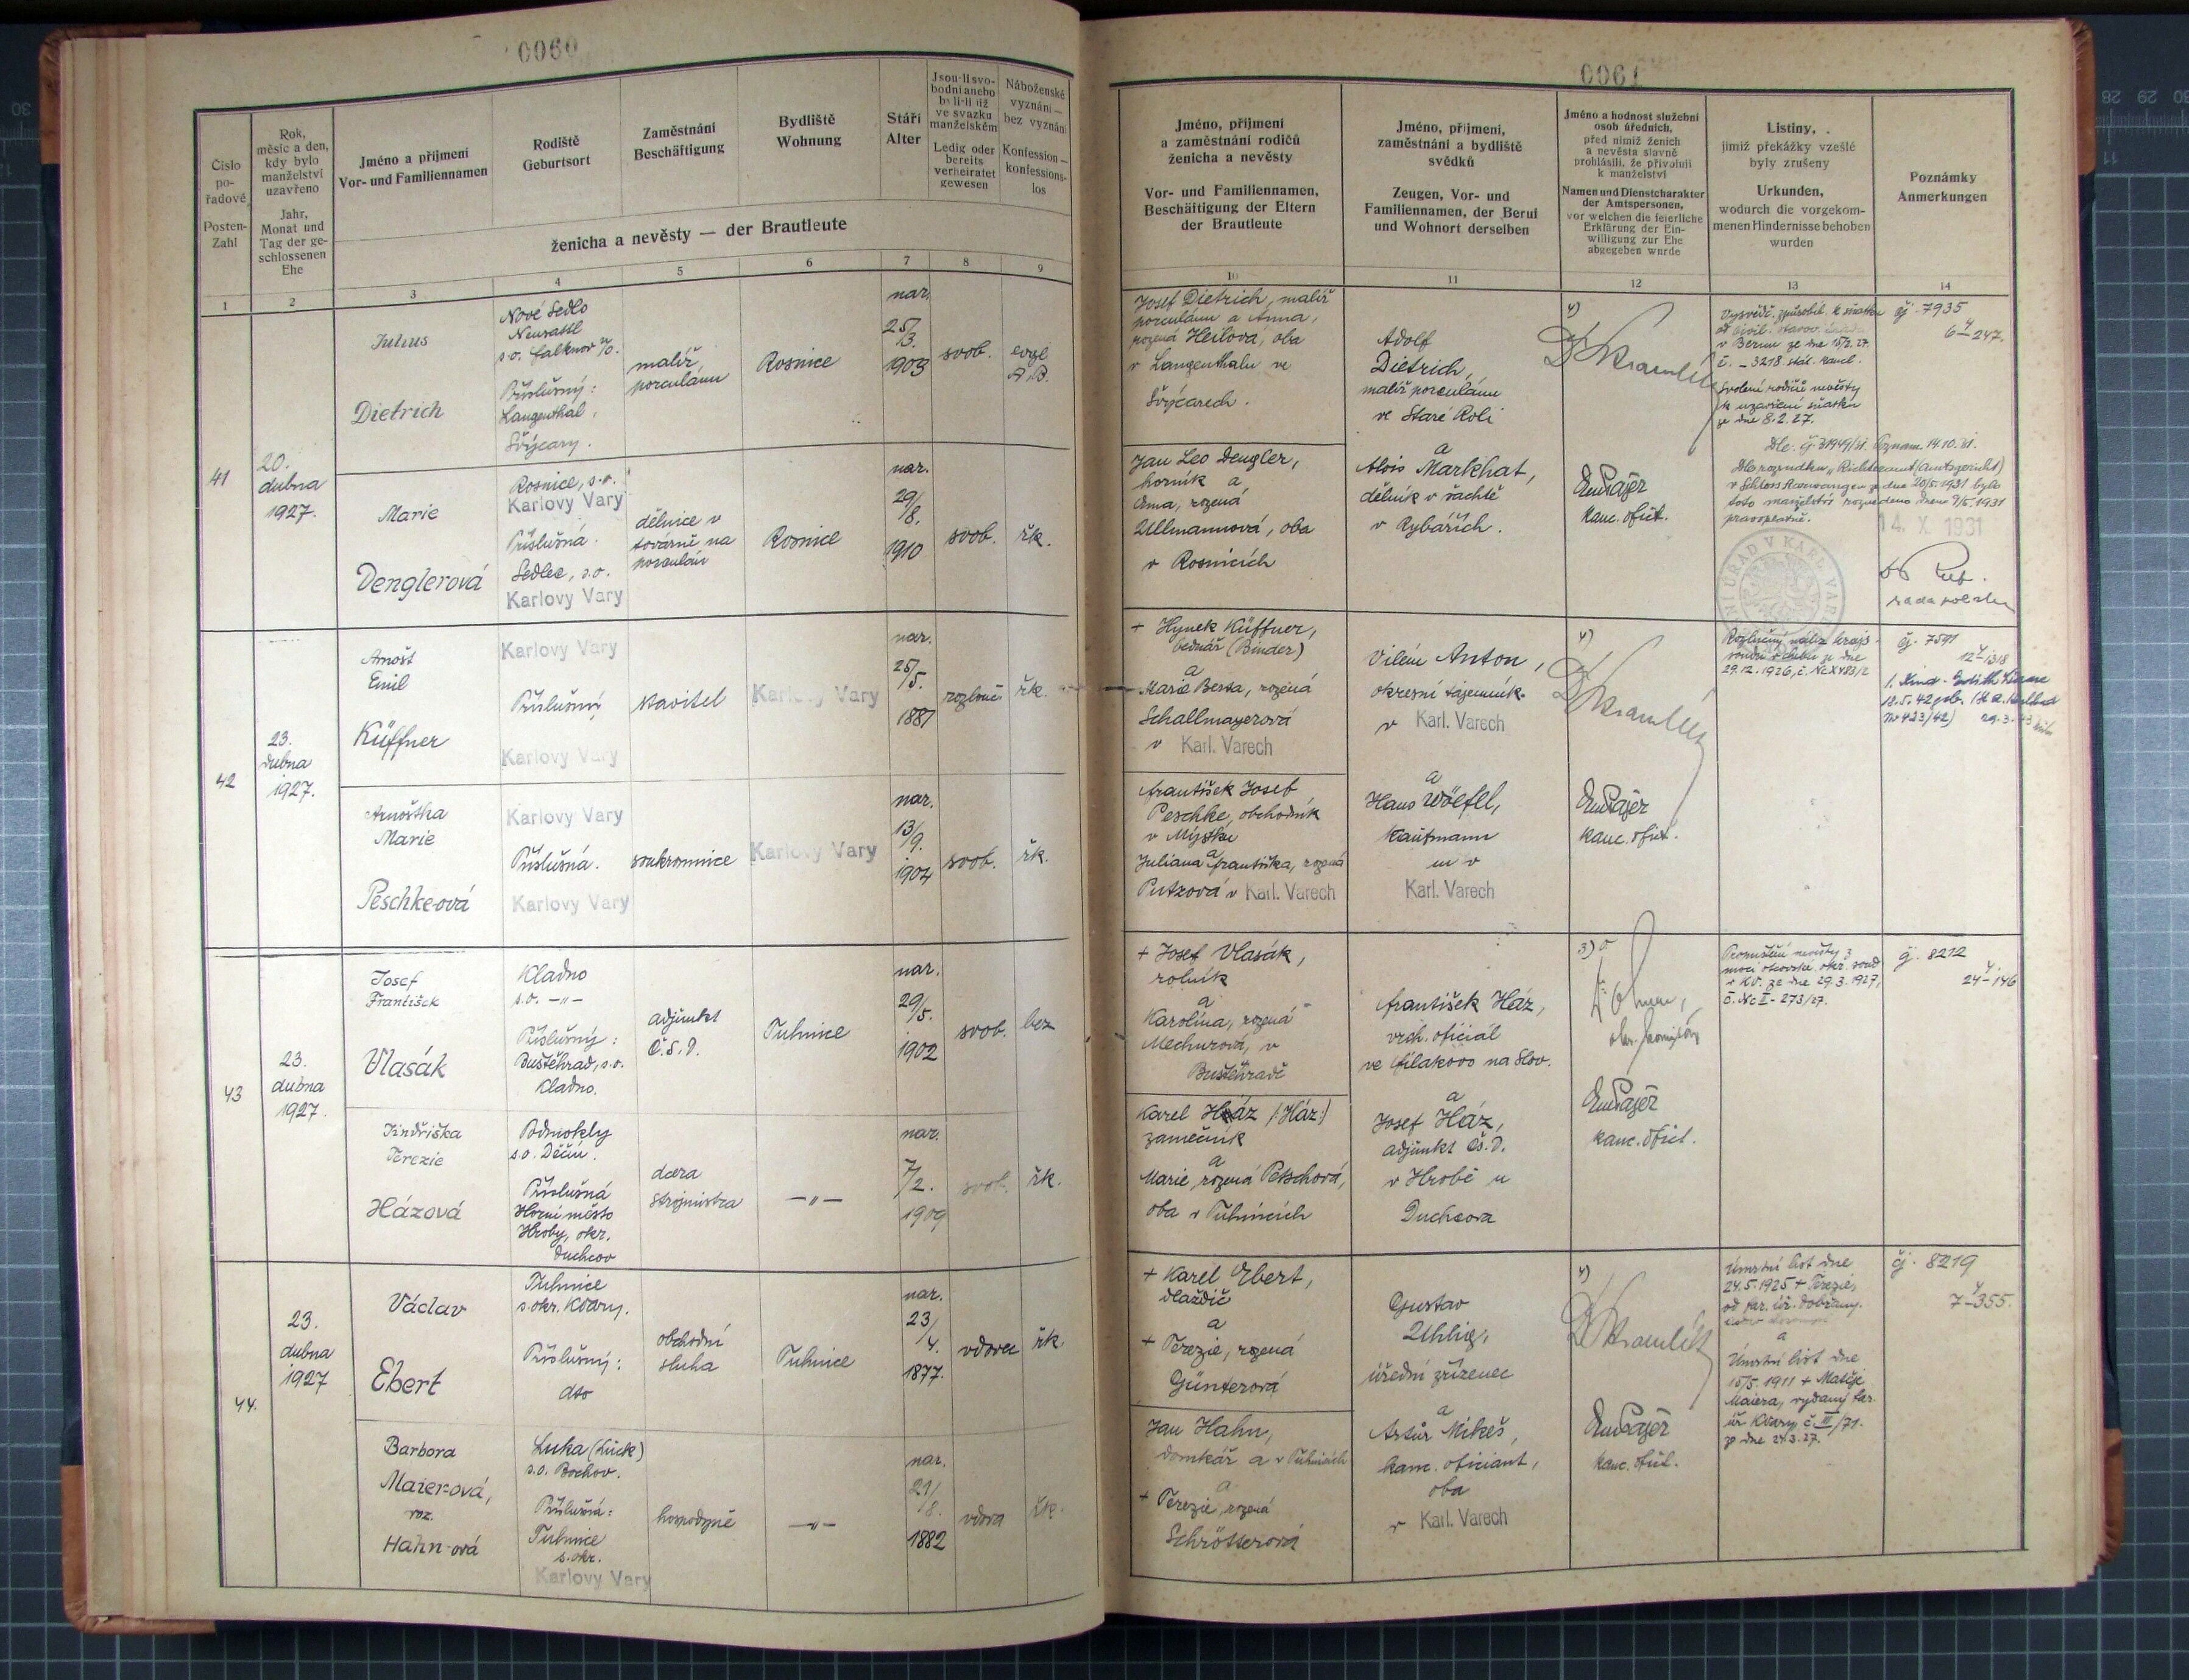 0060
Číslo
po-
řadové
Posten-
Zahl
Rok,
měsíc a den,
kdy bylo
manželství
uzavřeno
Jahr,
Monat und
Tag der ge-
schlossenen
Ehe
Jméno a příjmení
Vor- und Familiennamen
Rodiště
Geburtsort
Zaměstnání
Beschäftigung
Bydliště
Wohnung
Stáří
Alter
Jsou-li svo-
bodni anebo
byli-li již
ve svazku
manželském
Ledig oder
bereits
verheiratet
gewesen
Náboženské
vyznání —
bez vyznání
Konfession —
konfessions-
los
ženicha a nevěsty — der Brautleute
1 2 3 4 5 6 7 8 9
41
20.
dubna
1927.
Julius
Dietrich
Nové Sedlo
Neusattl
s.o. Falknov n/O.
Příslušný:
Langenthal,
Švýcary.
malíř
porculánu
Rosnice
nar.
25/
3.
1903
svob.
evgl
A.B.
Marie
Denglerová
Rosnice, s.o.
Karlovy Vary
Příslušná.
Sedlec, s.o.
Karlovy Vary
dělnice v
továrně na
porculán
Rosnice
nar.
29/
8.
1910
svob.
řk.
42
23.
dubna
1927.
Arnošt
Emil
Küffner
Karlovy Vary
Příslušný
Karlovy Vary
stavitel
Karlovy Vary
nar.
25/
5.
1887
rozlouč.
řk.
Arnoštka
Marie
Peschke-ová
Karlovy Vary
Příslušná.
Karlovy Vary
soukromnice
Karlovy Vary
nar.
13/
9.
1904
svob.
řk.
43
23.
dubna
1927.
Josef
František
Vlasák
Kladno
s.o. -"-
Příslušný:
Buštěhrad, s.o.
Kladno.
adjunkt
Č.S.D.
Tuhnice
nar.
29/
5.
1902
svob.
bez
Jindřiška
Terezie
Házová
Podmokly
s.o. Děčín.
Příslušná
Horní město
Hroby, okr.
Duchcov
dcera
strojmistra
-"-
nar.
7/
2.
1909
svob.
řk.
44.
23.
dubna
1927
Václav
Ebert
Tuhnice
s.okr. KVary.
Příslušný:
dto
obchodní
sluha
Tuhnice
nar.
23/
4.
1877.
vdovec
řk.
Barbora
Maier-ová,
roz.
Hahn-ová
Luka (Luck)
s.o. Bochov.
Příslušná:
Tuhnice
s.okr.
Karlovy Vary
hospodyně
-"-
nar.
21/
8.
1882
vdova
řk.
0061
Jméno, příjmení
a zaměstnání rodičů
ženicha a nevěsty
Vor- und Familiennamen,
Beschäftigung der Eltern
der Brautleute
Jméno, příjmení,
zaměstnání a bydliště
svědků
Zeugen, Vor- und
Familiennamen, der Beruf
und Wohnort derselben
Jméno a hodnost služební
osob úředních,
před nimiž ženich
a nevěsta slavně
prohlásili, že přivolují
k manželství
Namen und Dienstcharakter
der Amtspersonen,
vor welchen die feierliche
Erklärung der Ein-
willigung zur Ehe
abgegeben wurde
Listiny,
jimiž překážky vzešlé
byly zrušeny
Urkunden,
wodurch die vorgekom-
menen Hindernisse behoben
wurden
Poznámky
Anmerkungen
10 11 12 13 14
Josef Dietrich, malíř
porculánu a Anna,
rozená Heilová, oba
v Langenthalu ve
Švýcarech.
Adolf
Dietrich,
malíř porculánu
ve Staré Roli
Vysvědč. způsobil. k sňatku
od civil. stavov.
v Bernu ze dne 15/2. 27.
č. - 3218 stát. kancl.
Svolení rodičů nevěsty
k uzavření sňatku
ze dne 8.2.27.
čj. 7935
6 4/ 247.
Jan Leo Dengler,
horník a
Anna, rozená
Ullmannová, oba
v Rosnicích
a
Alois Markhat,
dělník v šachtě
v Rybářích.
kanc. ofict.
Dle. čj. 31949/31. Poznam. 14.10.31.
Dle rozsudku „Richteramt (Amtsgericht)
v Schloss Aarwangen ze dne 20/5. 1931 bylo
toto manželství rozvedeno dnem 9/6. 1931
pravoplatně.
14. X. 1931
+ Hynek Küffner,
bednář (Binder)
a
Marie Berta, rozená
Schallmayerová
v Karl. Varech
Vilém Anton,
okresní tajemník
v Karl. Varech
Rozlučný nález krajs.
soudu v Chebu ze dne
29.12.1926, č. Nc X 483/2
čj. 7591
12 4/ 1318
1. Kind
18.5.42 geb.
František Josef
Peschke, obchodník
v Místku
a
Juliana Františka, rozená
Putzová v Karl. Varech
a
Hans Wölfel,
Kaufmann
v
Karl. Varech
kanc. ofict.
+ Josef Vlasák,
rolník
a
Karolina, rozená
Mechurová, v
Buštěhradě
František Ház,
vrch. oficiál
ve Filakovo na Slov.
3)
okr. komisař
Prominutí nevěsty z
moci otcovské okr. soud
v KV. ze dne 29.3.1927,
č. Nc I - 273/27.
čj. 8212
24 4/ 146
Karel Ház (:Ház:)
zámečník
a
Marie, rozená Petschová,
oba v Tuhnicích
a
Josef Ház,
adjunkt Čs.D.
v Hrobě u
Duchcova
kanc. ofict.
+ Karel Ebert,
dlaždič
a
+ Terezie, rozená
Günterová
Gustav
Uhlig,
úřední zřízenec
Úmrtní list dne
24.5.1925 + Terezie,
od far. úř. Dobřany.
a
Úmrtní list dne
15/5. 1911 + Matěje
Maiera, vydaný far.
úř. KVary č. III/71.
ze dne 24.3.27.
čj. 8219
7 4/ 355.
Jan Hahn,
domkář a v Tuhnicích
a
+ Terezie, rozená
Schrötterová
a
Artur Mikeš,
kanc. oficiant,
oba
v Karl. Varech
kanc. ofict.